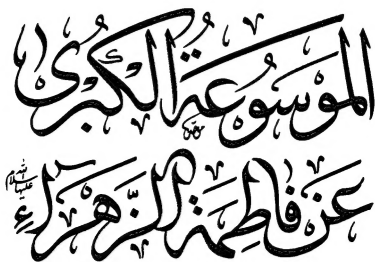 الْمَوْسُوعَةُ الْكُبْرَى
عَنْ فَاطِمَةَ الزَّهْرَاءِ عليها السلام